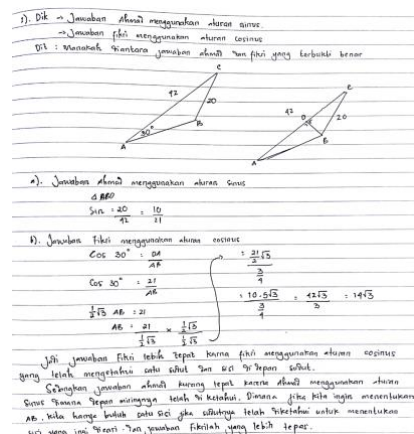 1). Dik → Jawaban Ahmad menggunakan aturan sinus.
→ Jawaban fikri menggunakan aturan cosinus
Dit : Manakah diantara jawaban ahmad dan fikri yang terbukti benar
C
42
20
30°
A
B
C
42
D
20
B
A
a). Jawaban Ahmad menggunakan aturan sinus
Sin = 20/42 = 10/21
b). Jawaban Fikri menggunakan aturan cosinus
Cos 30° = DA/AB
Cos 30° = 21/AB
1/2 √3 AB = 21
AB = 21/(1/2 √3) × (1/2 √3)/(1/2 √3)
= (21/2 √3)/(3/4)
= (10.5√3)/(3/4) = 42√3/3 = 14√3
Jadi jawaban Fikri lebih tepat karna fikri menggunakan aturan cosinus
yang telah mengetahui satu sudut dan sisi di depan sudut.
Sedangkan jawaban ahmad kurang tepat karena Ahmad menggunakan aturan
Sinus dimana depan miringnya telah diketahui. Dimana jika kita ingin menentukan
AB, kita hanya butuh satu sisi jika sudutnya telah diketahui untuk menentukan
sisi yang ingi dicari. Dan jawaban Fikrilah yang lebih tepat.